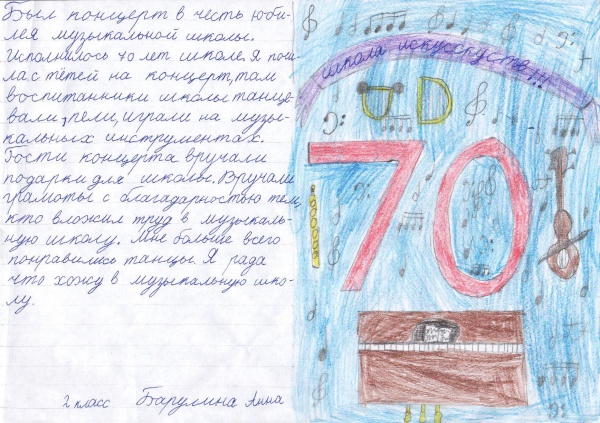 Был концерт в честь юби-
лея музыкальной школы.
Исполнилось 70 лет школе. Я пош
ла с тётей на концерт, там
воспитанники школы танце-
вали, пели, играли на музы-
кальных инструментах.
Гости концерта вручали
подарки для школы. Вручали
грамоты с благодарностью тем,
кто вложил труд в музыкаль-
ную школу. Мне больше всего
понравились танцы. Я рада
что хожу в музыкальную шко-
лу.
2 класс Барулина Анна
школа искусскуств!!!
70